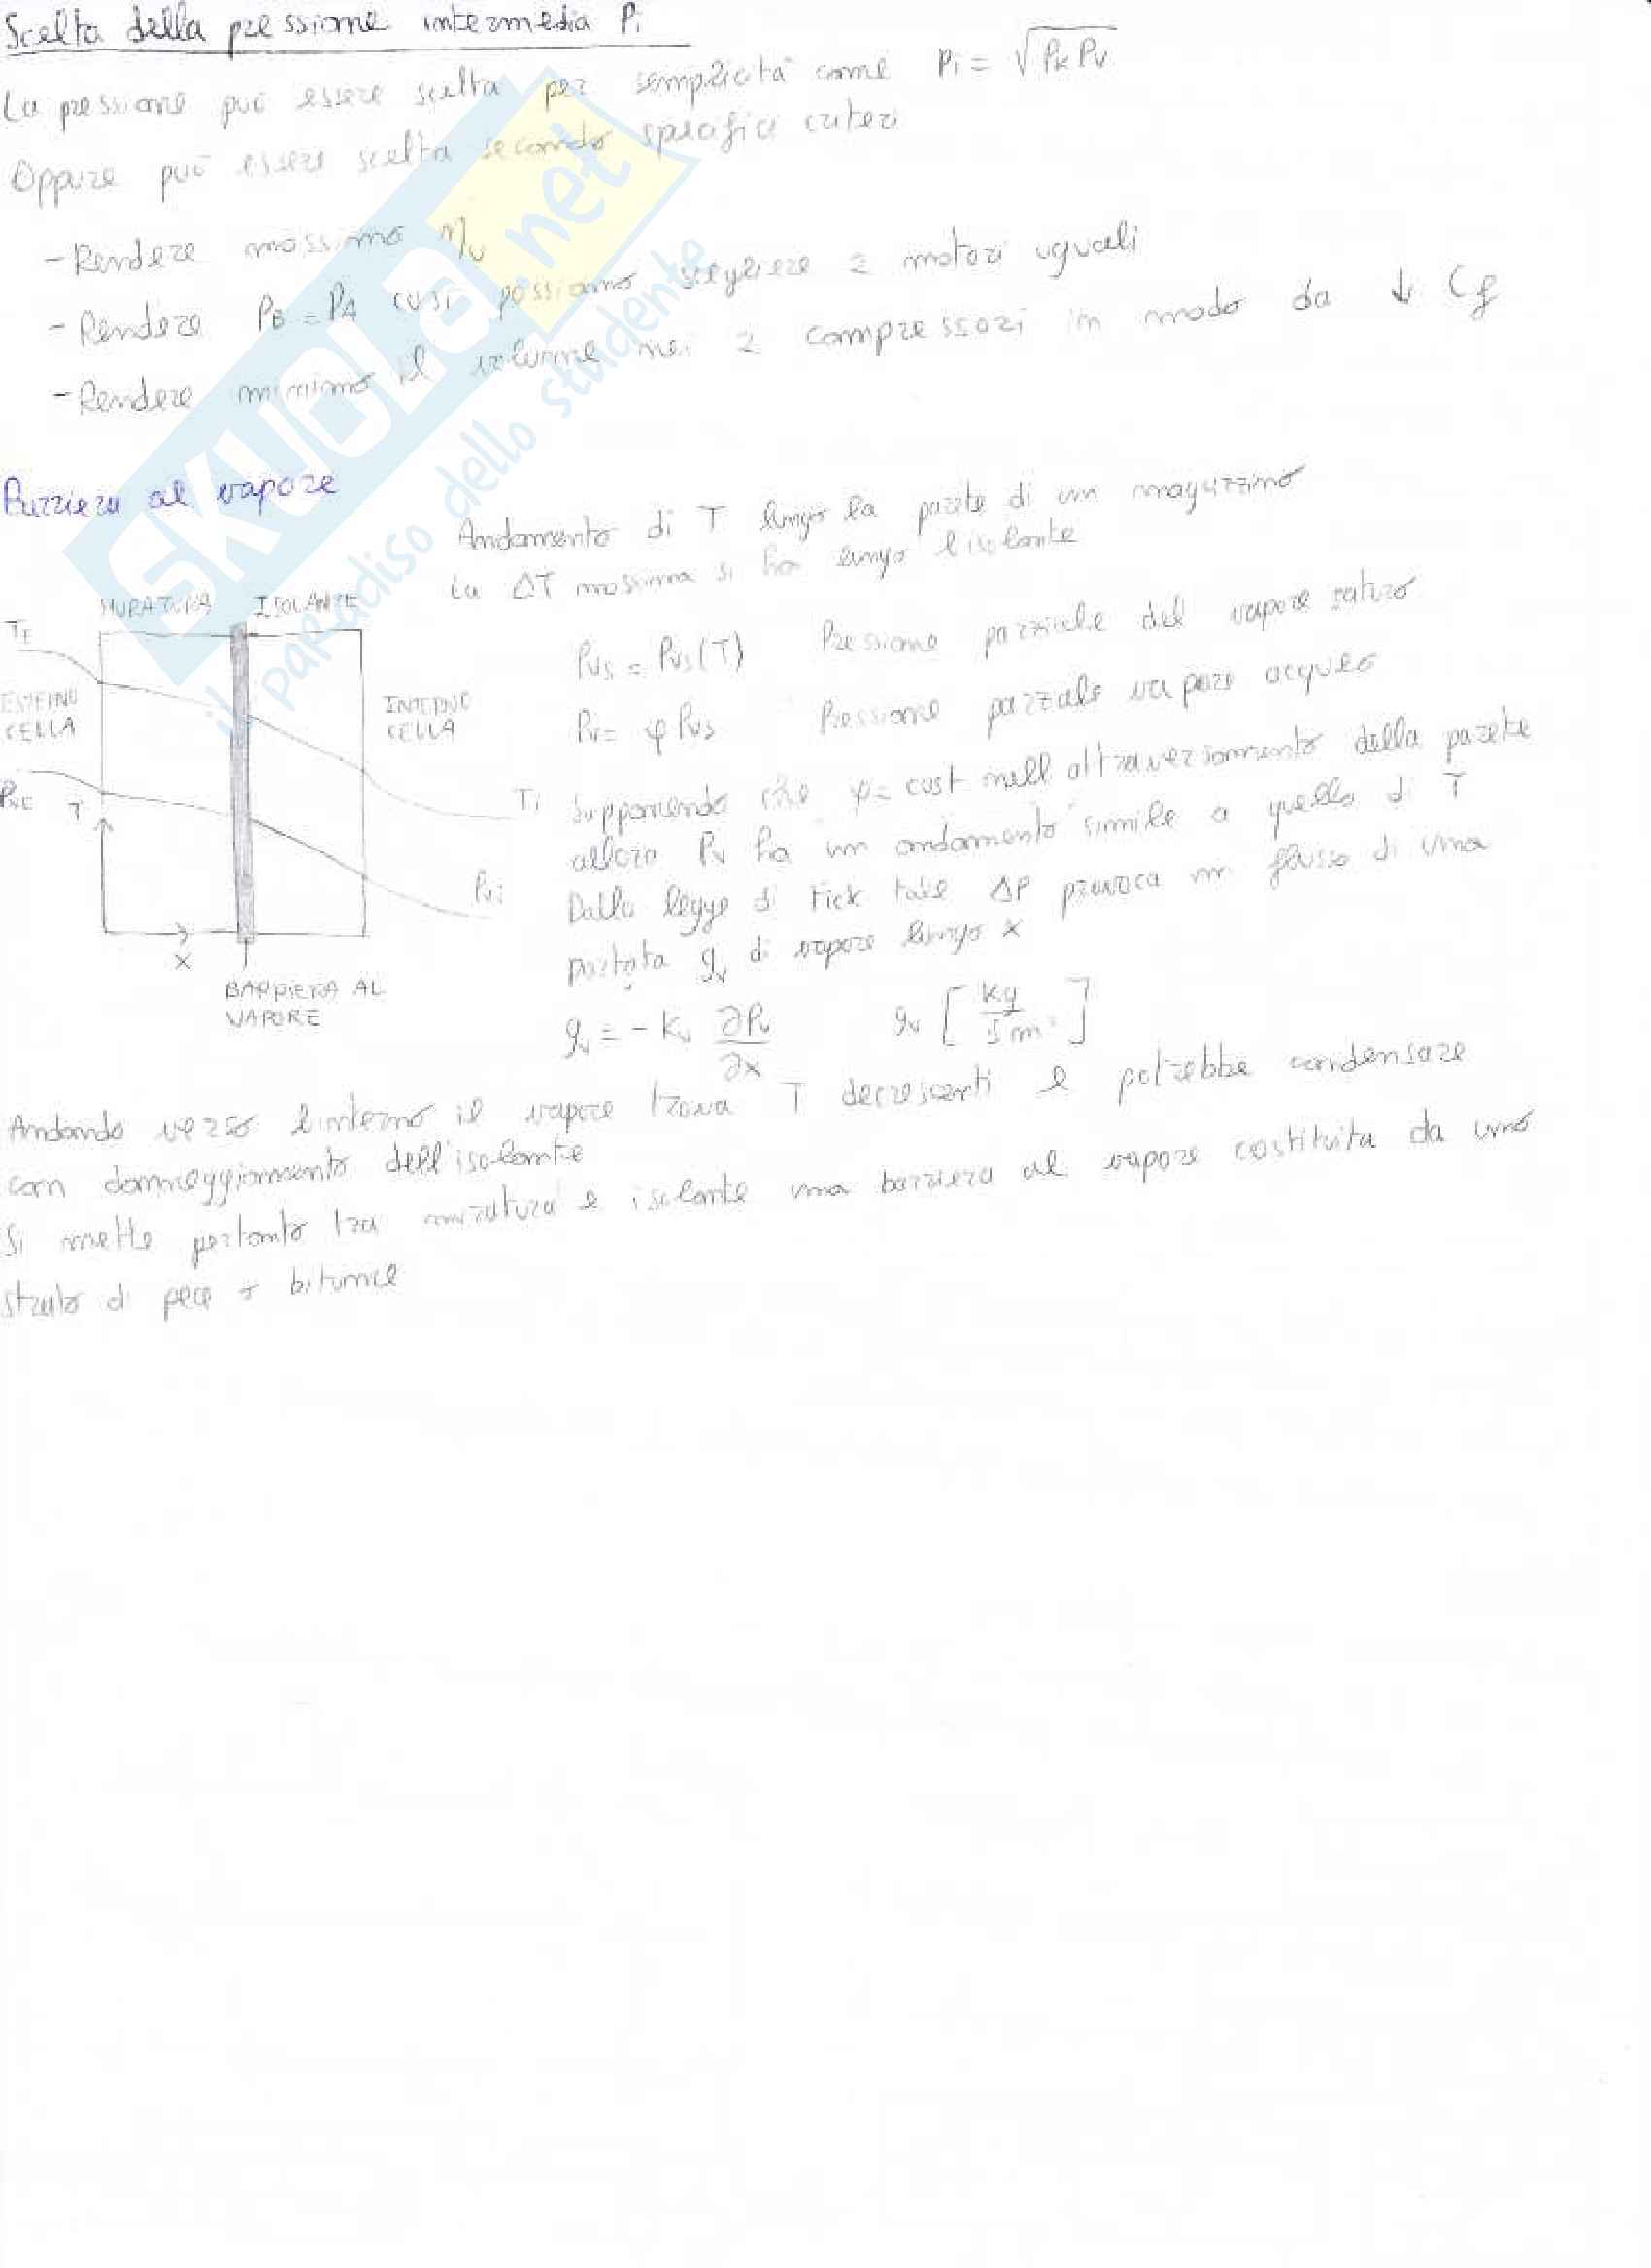 Scelta della pressione intermedia Pi
La pressione può essere scelta per semplicità come Pi = √(Pk Pv)
Oppure può essere scelta secondo specifici criteri
- Rendere massimo ηv
- Rendere PB = PA così possiamo scegliere 2 motori uguali
- Rendere minimo il volume nei 2 compressori in modo da ↓ Cf
SKUOLA.net
il paradiso dello studente
Barriera al vapore
Andamento di T lungo la parete di un magazzino
La ΔT massima si ha lungo l isolante
MURATURA ISOLANTE
TE
ESTERNO CELLA
INTERNO CELLA
PVE
T
Ti
Pvi
x
BARRIERA AL VAPORE
Pvs = Pvs(T) Pressione parziale del vapore saturo
Pv = φ Pvs Pressione parziale vapore acqueo
Supponendo che φ = cost nell attraversamento della parete
allora Pv ha un andamento simile a quello di T
Dalla legge di Fick tale ΔP provoca un flusso di una
portata gv di vapore lungo x
gv = - Kv ∂Pv/∂x gv [kg/s m²]
Andando verso l interno il vapore trova T decrescenti e potrebbe condensare
con danneggiamento dell'isolante
Si mette pertanto tra muratura e isolante una barriera al vapore costituita da uno
strato di pece o bitume